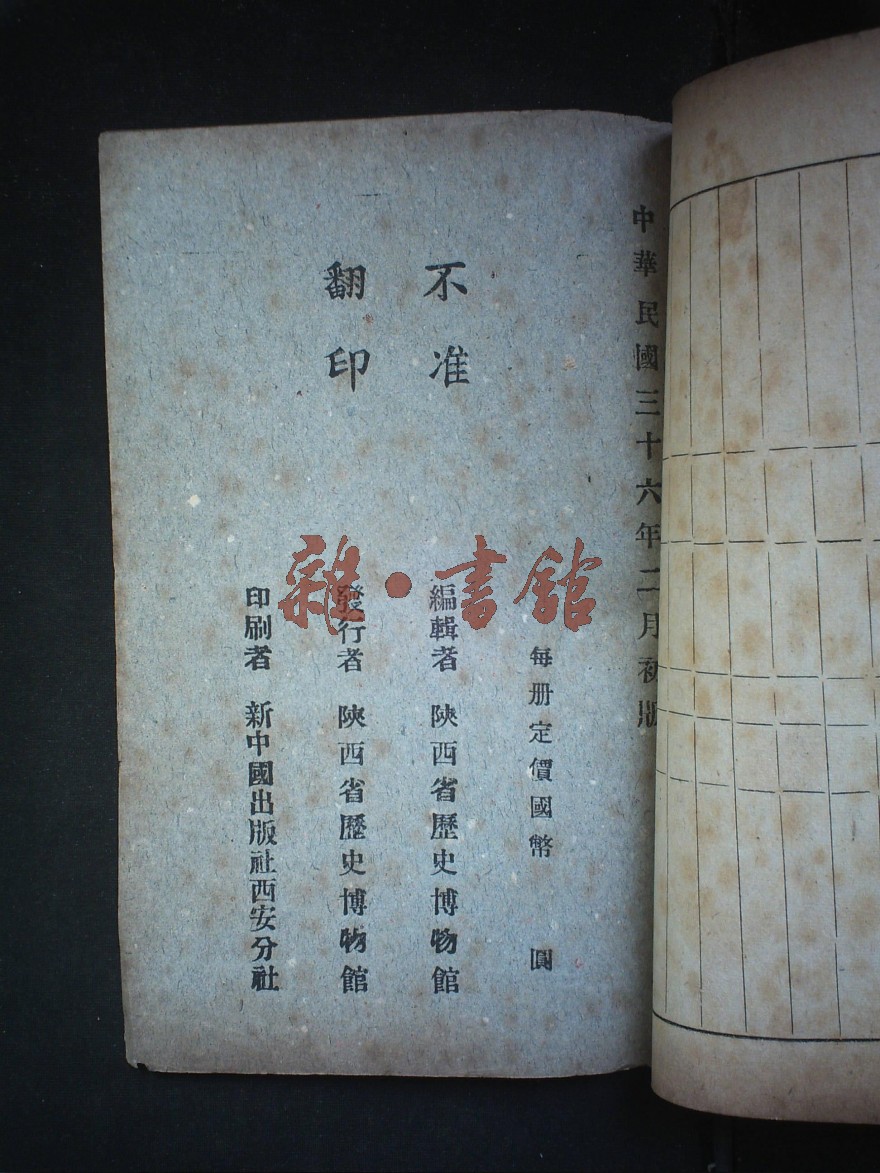 中華民國三十六年二月初版
不准
翻印
每册定價國幣　圓
編輯者　陝西省歷史博物館
發行者　陝西省歷史博物館
印刷者　新中國出版社西安分社
雜·書館